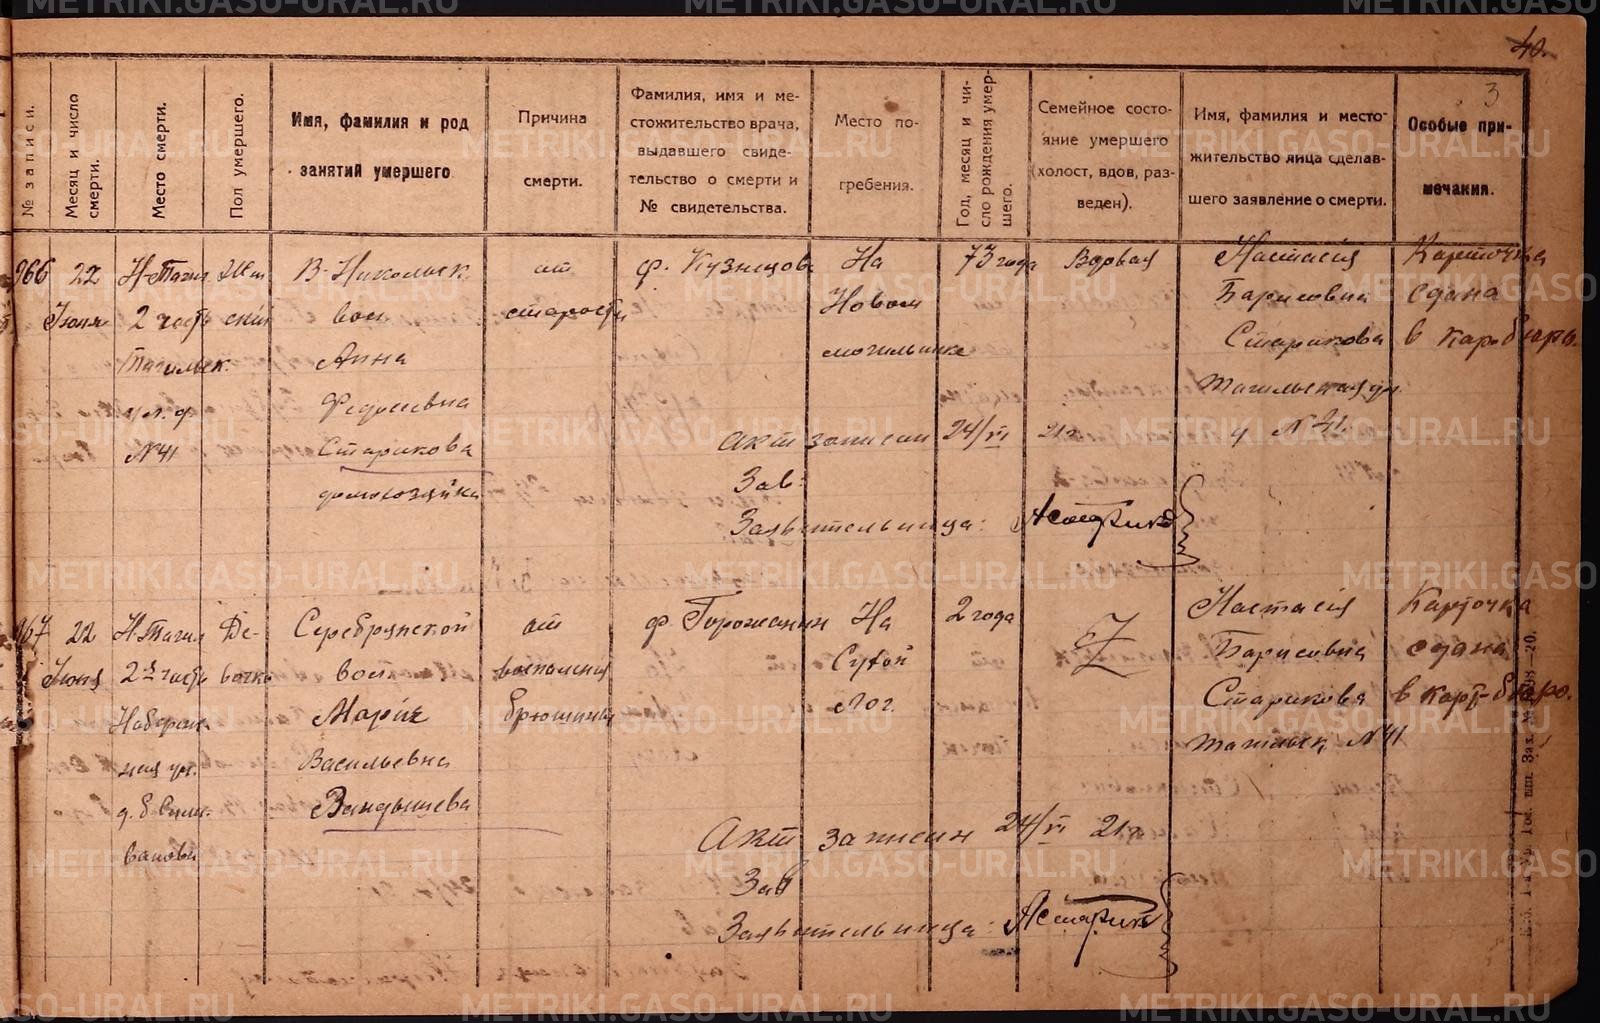 40.
3
№ записи.
Месяц и число смерти.
Место смерти.
Пол умершего.
Имя, фамилия и род занятий умершего
Причина смерти.
Фамилия, имя и местожительство врача, выдавшего свидетельство о смерти и № свидетельства.
Место погребения.
Год, месяц и число рождения умершего.
Семейное состояние умершего (холост, вдов, разведен).
Имя, фамилия и местожительство лица сделавшего заявление о смерти.
Особые примечания.
966
22
Июня
Н-Тагил
2 часть
Тагильск.
ул. д.
№41
Жен
ский
В-Никольск.
вол
Анна
Федосеевна
Старикова
домохозяйка
от
старости
ф. Кузнецов
На
Новом
могильнике
73 года
Вдовая
Настасия
Барисовна
Старикова
Тагильская ул.
д №41.
Карточка
сдана
в кар-бюро.
Акт записан 24/VI 21г.
Зав:
Заявительница:
967
22
Июня
Н-Тагил
2-я часть
Набереж-
ная ул.
д. б Сели-
ванова
Де-
вочка
Серебрянской
вол
Мария
Васильевна
Вандышева
от
воспаления
брюшины
ф. Горожанин
На
Сухой
Лог.
2 года
Z
Настасия
Барисовна
Старикова
Тагильск №41
Карточка
сдана
в карт-бюро.
Акт записан 24/VI 21г.
Зав
Заявительница:
METRIKI.GASO-URAL.RU